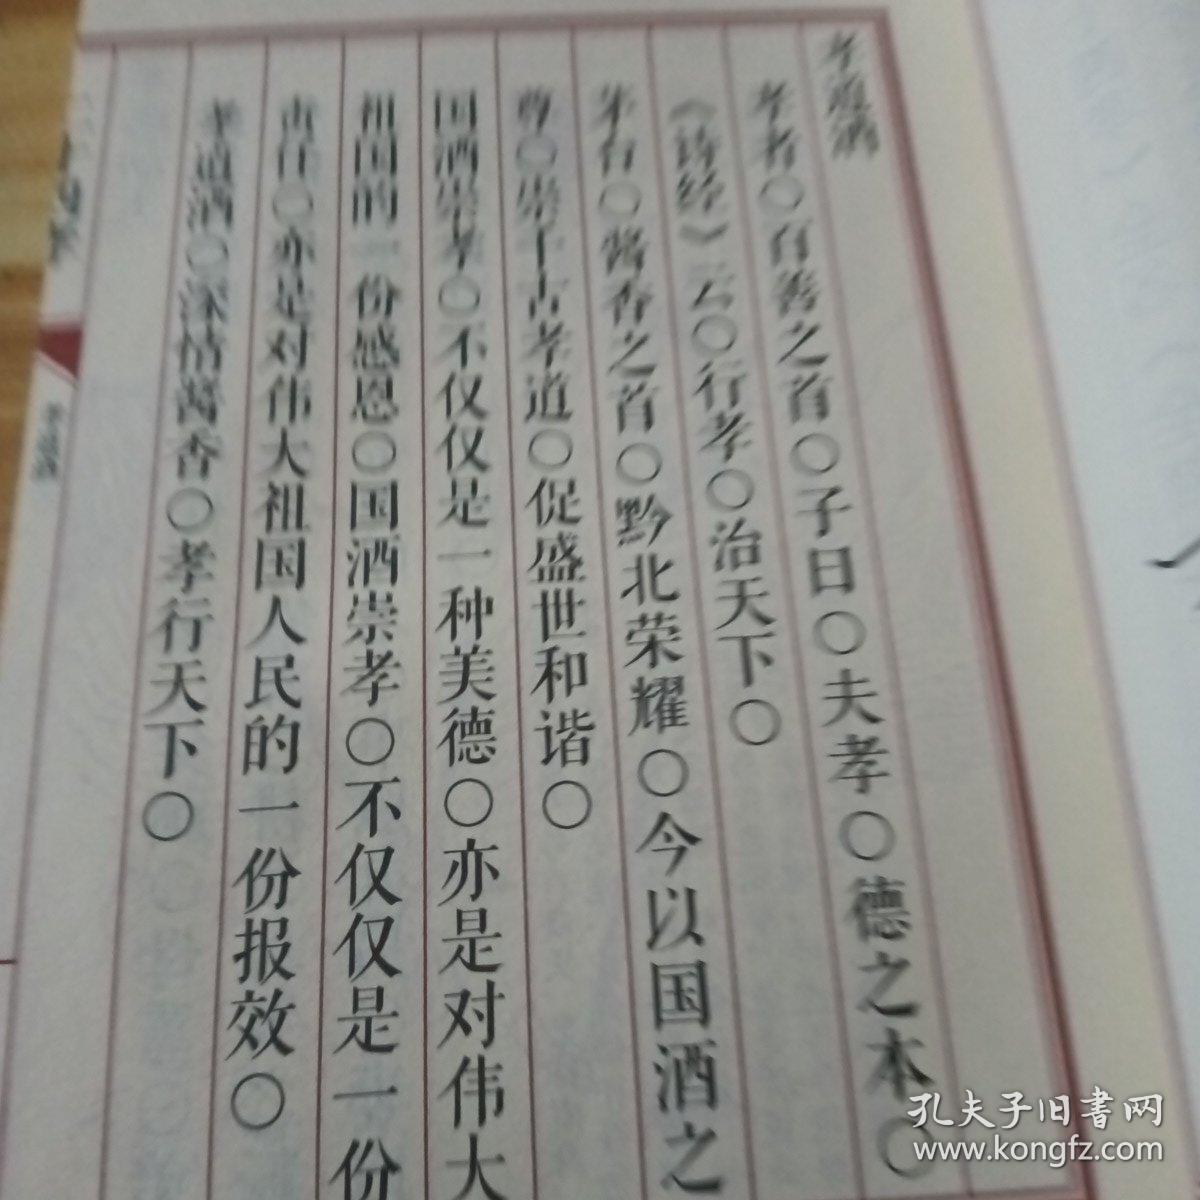 孝道酒
孝者〇百善之首〇子曰〇夫孝〇德之本〇
《诗经》云〇行孝〇治天下〇
茅台〇酱香之首〇黔北荣耀〇今以国酒之
尊〇崇千古孝道〇促盛世和谐〇
国酒崇孝〇不仅仅是一种美德〇亦是对伟大
祖国的一份感恩〇国酒崇孝〇不仅仅是一份
责任〇亦是对伟大祖国人民的一份报效〇
孝道酒〇深情蒟香〇孝行天下〇
孝道酒
孔夫子旧书网
www.kongfz.com